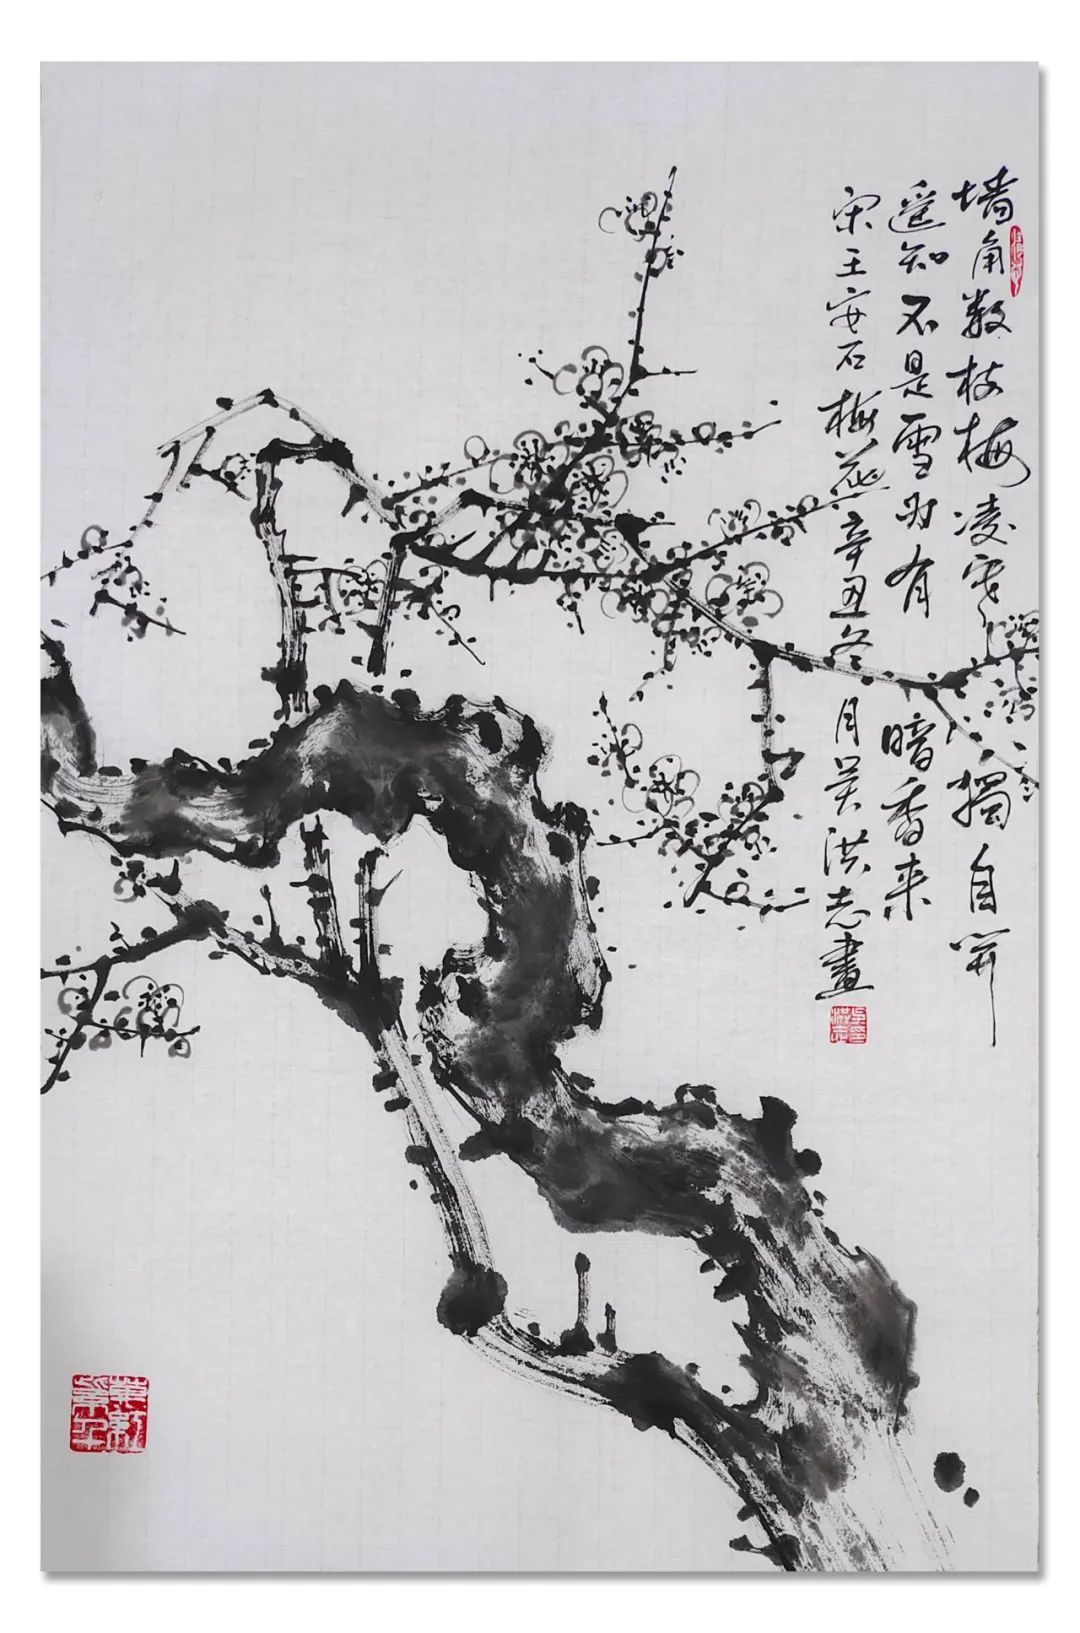 墙角数枝梅凌寒獨自開
遥知不是雪为有暗香来
宋王安石梅花辛丑冬月吴洪志畫